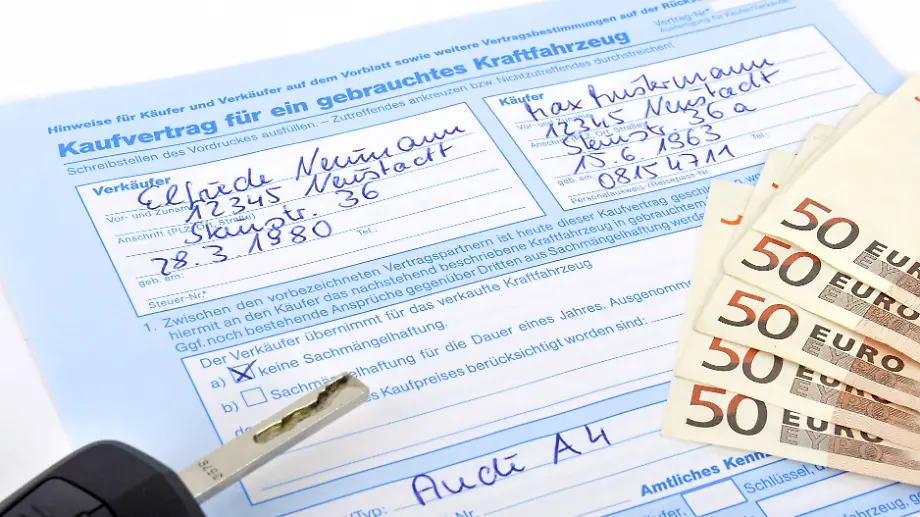 Hinweise für Käufer und Verkäufer auf dem Vorblatt sowie weitere Vertragsbestimmungen auf der Rücks
Vertrag-Nr.
Ausfertigung für Käufer/Verkäufer
Kaufvertrag für ein gebrauchtes Kraftfahrzeug
Schreibstellen des Vordruckes ausfüllen. – Zutreffendes ankreuzen bzw. Nichtzutreffendes durchstreichen!
Verkäufer
Elfriede Neumann
Vor- und Zuname
12345 Neustadt
Anschrift (PLZ, Ort, Straße)
Steinstr. 36
28.3.1980
geb. am:
Tel.:
Steuer-Nr.*
Käufer
Max Mustermann
Vor- und Zuname
12345 Neustadt
Anschrift (PLZ, Ort, Straße)
Steinstr. 36a
15.6.1963
geb. am:
Tel.:
08154711
Personalausweis-/Reisepass-Nr.
1. Zwischen den vorbezeichneten Vertragspartnern ist heute dieser Kaufvertrag geschl
hiermit an den Käufer das nachstehend beschriebene Kraftfahrzeug in gebrauchtem
Ggf. noch bestehende Ansprüche gegenüber Dritten aus Sachmängelhaftung werden
Der Verkäufer übernimmt für das verkaufte Kraftfahrzeug
a) keine Sachmängelhaftung.
b) Sachmängelhaftung für die Dauer eines Jahres. Ausgenomm
des Kaufpreises berücksichtigt worden sind:
/Typ: Audi A4
Amtliches Kenn
Schlüssel,
Kraftfahrzeug,
50 EURO
50 EURO
50 EURO
50 EURO
50 EURO